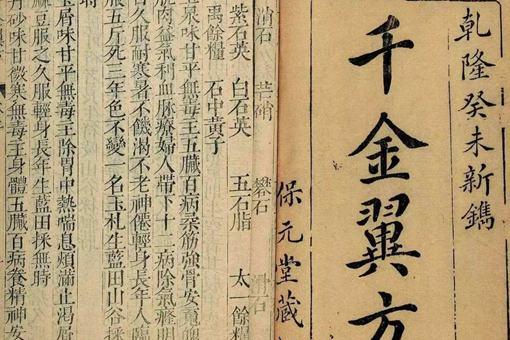 乾隆癸未新鐫
千金翼方
保元堂藏
消石 芒硝 礬石 滑石
紫石英 白石英 玉石脂 太一餘糧
禹餘糧 石中黃子
玉泉味甘平無毒主五臟百病柔筋強骨安魂
肌肉益氣利血脉療婦人帶下十二病除氣癃明
久服耐寒暑不饑渴不老神僊輕身長年人臨
服五斤死三年色不變一名玉札生藍田山谷採
時
玉屑味甘平無毒主除胃中熱喘息煩滿止渴屑
麻豆服之久服輕身長年生藍田採無時
丹砂味甘微寒無毒主身體五臟百病養精神安